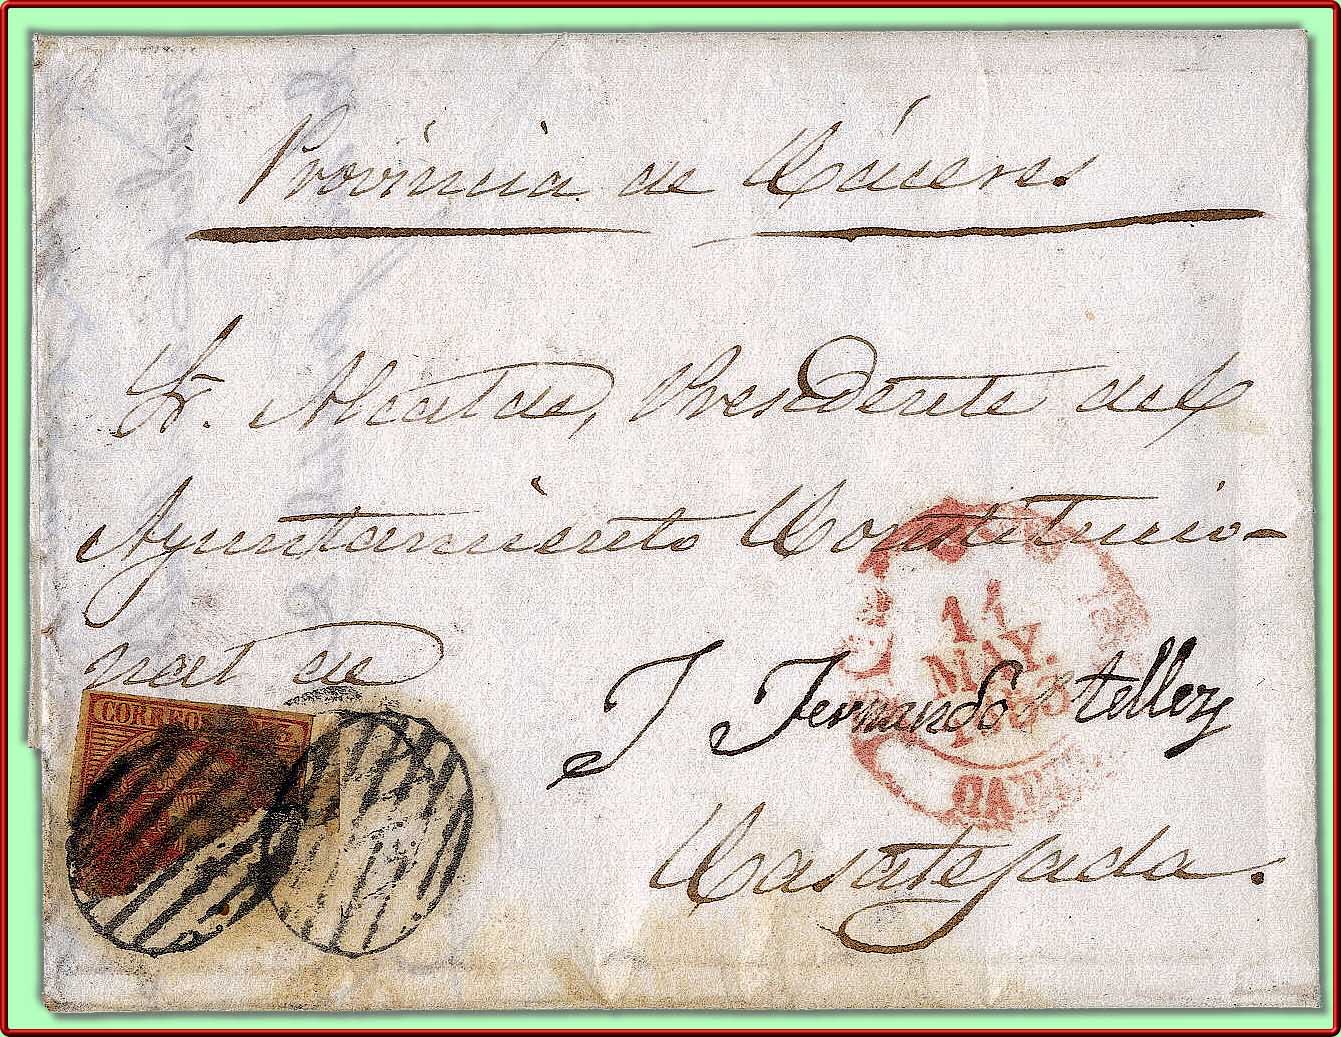 Provincia de Cáceres
Sr. Alcalde, Presidente del
Ayuntamiento Constitucio-
nal de
J Fernando tellez
Casatejada.
CORREOS
11
MAY.